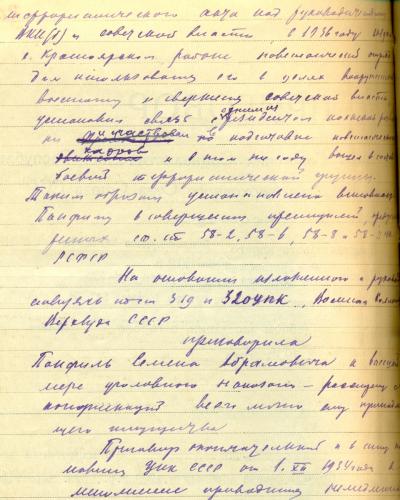 террористического акта над руководителями
ВКП(б) и советской власти, в 1936 году
в Красноярском районе повстанческий
дам использовать его в целях вооружен
восстания и свержения советской власти
установил связь с другими
и участвовал по подготовке повстанческих
кадров
и в том же году вошел в состав
боевой террористической группы.
Таким образом установлена виновность
Панфиль в совершении преступлений предус
ренных ст. ст. 58-2, 58-6, 58-8 и 58-11 УК
РСФСР
На основании изложенного и руковод
ствуясь ст. ст. 319 и 320 УПК, Военная Коллегия
Верхсуда СССР
приговорила
Панфиль Семена Абрамовича к высшей
мере уголовного наказания – расстрелу с
конфискацией всего лично ему принадлежа
щего имущества
Приговор окончательный и в силу по
становления ЦИК СССР от 1. XII 1934 года
исполнение приводится немедленно